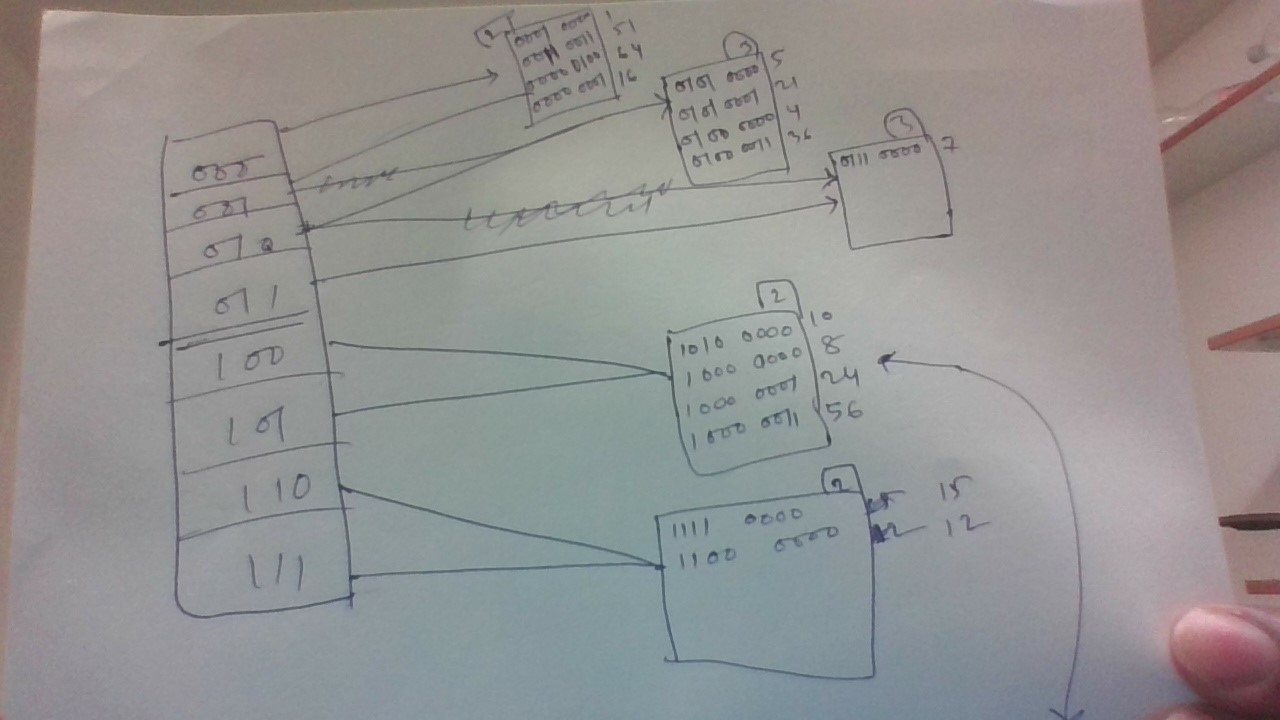 000
001
010
011
100
101
110
111
2
0001 0000 1
0011 0011 51
0000 0100 64
0000 0001 16
3
0101 0000 5
0101 0001 21
0100 0000 4
0100 0011 36
3
0111 0000 7
2
1010 0000 10
1000 0000 8
1000 0001 24
1000 0011 56
2
1111 0000 15
1100 0000 12